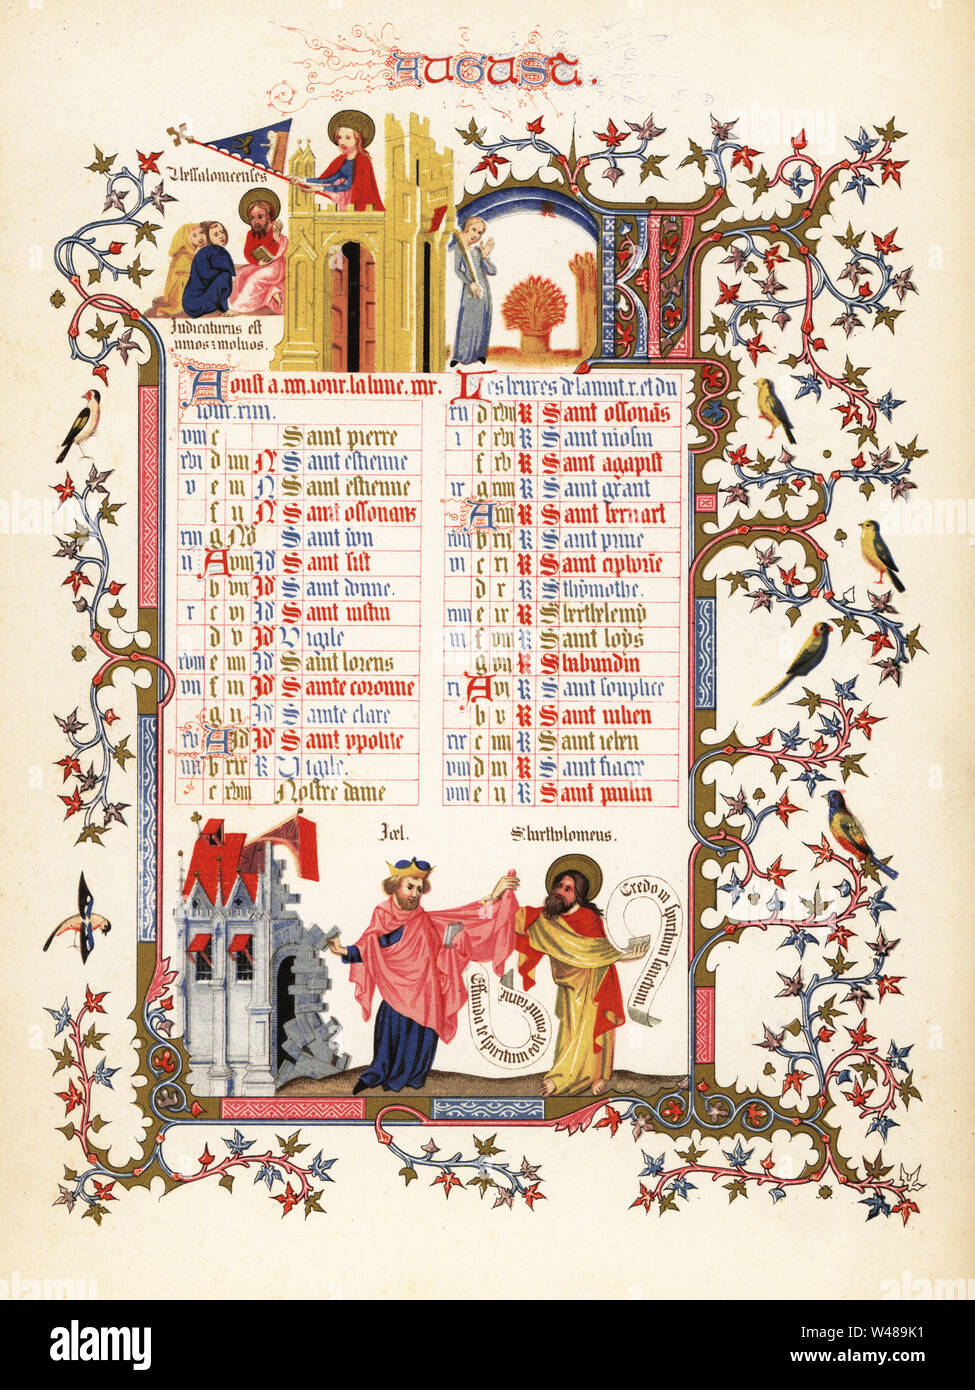 AUGUST.
Judicaturus est
vivos et mortuos.
Aoust a. xxxi. iour. la lune. xxx.
iour. xiiii.
viii c Saint pierre
xvi d iiii N Saint estienne
v e iii N Saint estienne
f ii N Saint ossonans
xiii g No Saint yon
ii A viii Id Saint sist
b vii Id Saint donne.
x c vi Id Saint iustin
d v Id Vigile
xviii e iiii Id Saint lorens
vii f iii Id Sainte coronne
g ii Id Sainte clare
xv A Id Id Saint ypolite
iiii b xix K Vigile.
c xviii Nostre dame
Les heures de la nuit. x. et du
xii d xvii K Saint ossonans
i e xvi K Saint niosin
f xv K Saint agapist
ix g xiiii K Saint grant
A xiii K Saint bernart
xvii b xii K Saint prive
vi c xi K Saint ciphorien
d x K St thymothe.
xiiii e ix K St berthelemy
iii f viii K Saint loys
g vii K St abundin
xi A vi K Saint souplice
b v K Saint iulien
xix c iiii K Saint iehen
viii d iii K Saint fiacre
viii e ii K Saint paulin
Joel.
S. bartholomeus.
Effunda de spiritum meo super omnem
Credo in spiritum sanctum.
alamy
Image ID: W489K1
www.alamy.com